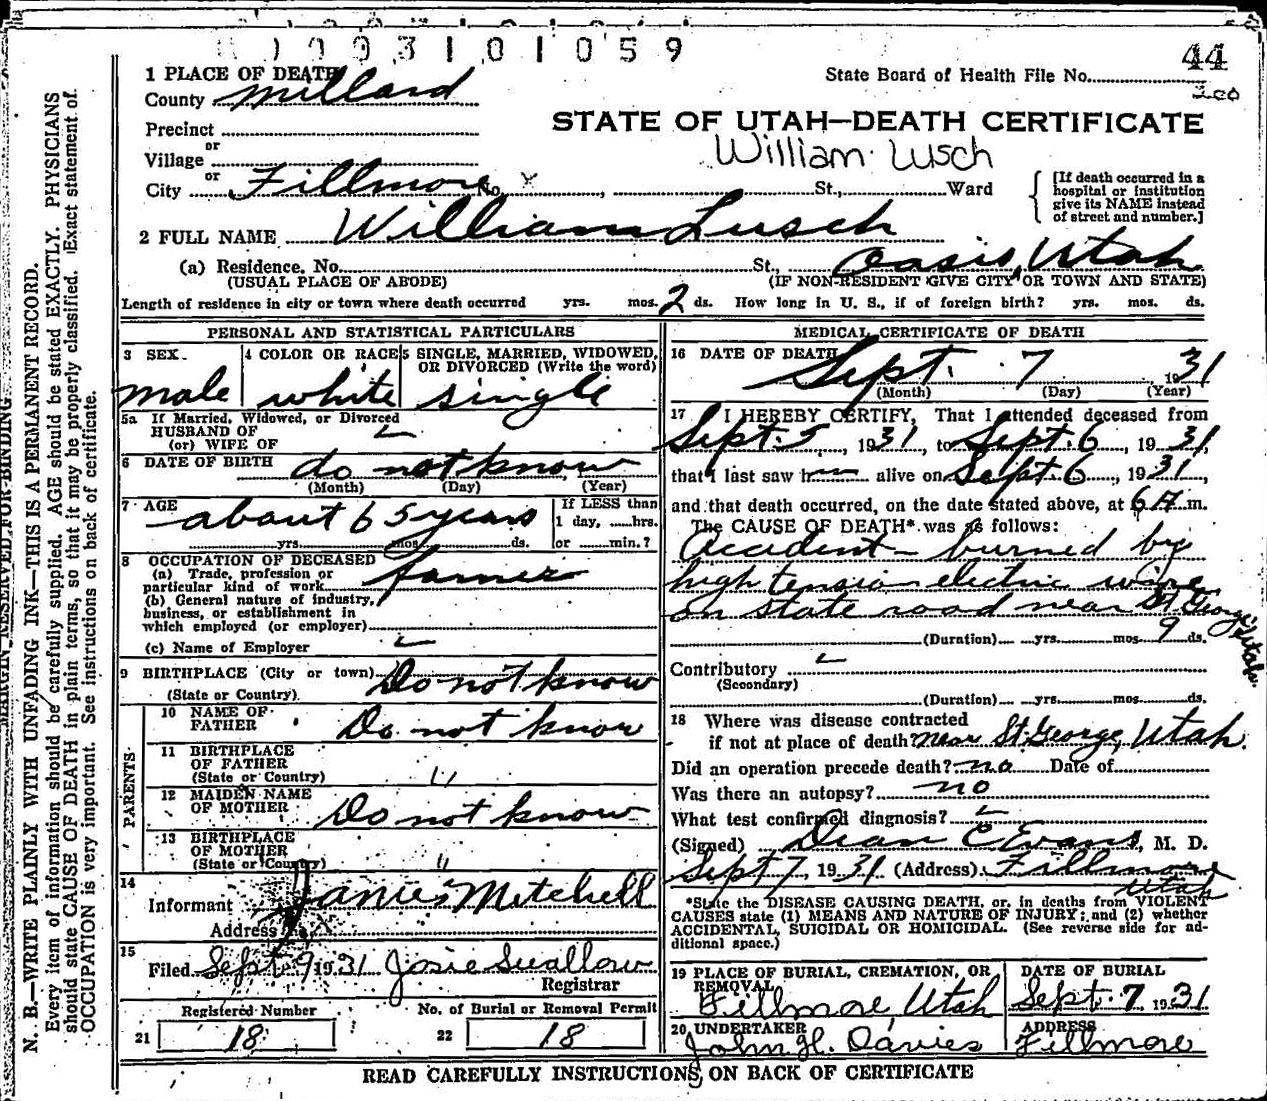 1003101059
44
1 PLACE OF DEATH
State Board of Health File No.
County Millard
STATE OF UTAH—DEATH CERTIFICATE
Precinct
or
William Lusch
Village
or
City Fillmore No. x St., Ward
[If death occurred in a hospital or institution give its NAME instead of street and number.]
2 FULL NAME William Lusch
(a) Residence. No. St., Oasis, Utah
(USUAL PLACE OF ABODE) (IF NON-RESIDENT GIVE CITY OR TOWN AND STATE)
Length of residence in city or town where death occurred yrs. mos. 2 ds. How long in U. S., if of foreign birth? yrs. mos. ds.
PERSONAL AND STATISTICAL PARTICULARS
3 SEX 4 COLOR OR RACE 5 SINGLE, MARRIED, WIDOWED, OR DIVORCED (Write the word)
male white single
5a If Married, Widowed, or Divorced
HUSBAND OF
(or) WIFE OF
6 DATE OF BIRTH do not know
(Month) (Day) (Year)
7 AGE about 65 years
If LESS than 1 day, hrs. or min.?
yrs. mos. ds.
8 OCCUPATION OF DECEASED
(a) Trade, profession or particular kind of work farmer
(b) General nature of industry, business, or establishment in which employed (or employer)
(c) Name of Employer
9 BIRTHPLACE (City or town) Do not know
(State or Country)
PARENTS
10 NAME OF FATHER Do not know
11 BIRTHPLACE OF FATHER (State or Country) "
12 MAIDEN NAME OF MOTHER Do not know
13 BIRTHPLACE OF MOTHER (State or Country) "
14 Informant James Mitchell
Address
15 Filed Sept 9 1931 Josie Swallow
Registrar
Registered Number No. of Burial or Removal Permit
21 18 22 18
MEDICAL CERTIFICATE OF DEATH
16 DATE OF DEATH Sept. 7 1931
(Month) (Day) (Year)
17 I HEREBY CERTIFY, That I attended deceased from
Sept. 5, 1931, to Sept. 6, 1931,
that I last saw h alive on Sept. 6, 1931,
and that death occurred, on the date stated above, at 6 A m.
The CAUSE OF DEATH* was as follows:
Accident - burned by
high tension electric wire
on state road near St George Utah.
(Duration) yrs. mos. 9 ds.
Contributory
(Secondary)
(Duration) yrs. mos. ds.
18 Where was disease contracted
if not at place of death? near St. George, Utah.
Did an operation precede death? no Date of
Was there an autopsy? no
What test confirmed diagnosis?
(Signed) Dean C Evans, M. D.
Sept 7, 1931 (Address) Fillmore
Utah
*State the DISEASE CAUSING DEATH, or, in deaths from VIOLENT
CAUSES state (1) MEANS AND NATURE OF INJURY; and (2) whether
ACCIDENTAL, SUICIDAL OR HOMICIDAL. (See reverse side for ad-
ditional space.)
19 PLACE OF BURIAL, CREMATION, OR REMOVAL DATE OF BURIAL
Fillmore, Utah Sept. 7 1931
20 UNDERTAKER ADDRESS
John H. Davies Fillmore
READ CAREFULLY INSTRUCTIONS ON BACK OF CERTIFICATE
MARGIN RESERVED FOR BINDING
N. B.—WRITE PLAINLY WITH UNFADING INK—THIS IS A PERMANENT RECORD.
Every item of information should be carefully supplied. AGE should be stated EXACTLY. PHYSICIANS
should state CAUSE OF DEATH in plain terms, so that it may be properly classified. Exact statement of
OCCUPATION is very important. See instructions on back of certificate.